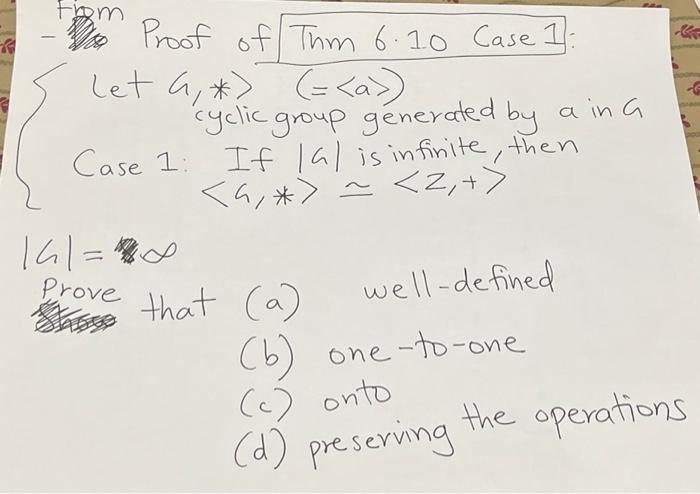 From
- Proof of Thm 6.10 Case 1:
Let G, *> (= <a>)
cyclic group generated by a in G
Case 1: If |G| is infinite, then
<G, *> ≃ <Z, +>
|G| = ∞
Prove that (a) well-defined
(b) one-to-one
(c) onto
(d) preserving the operations